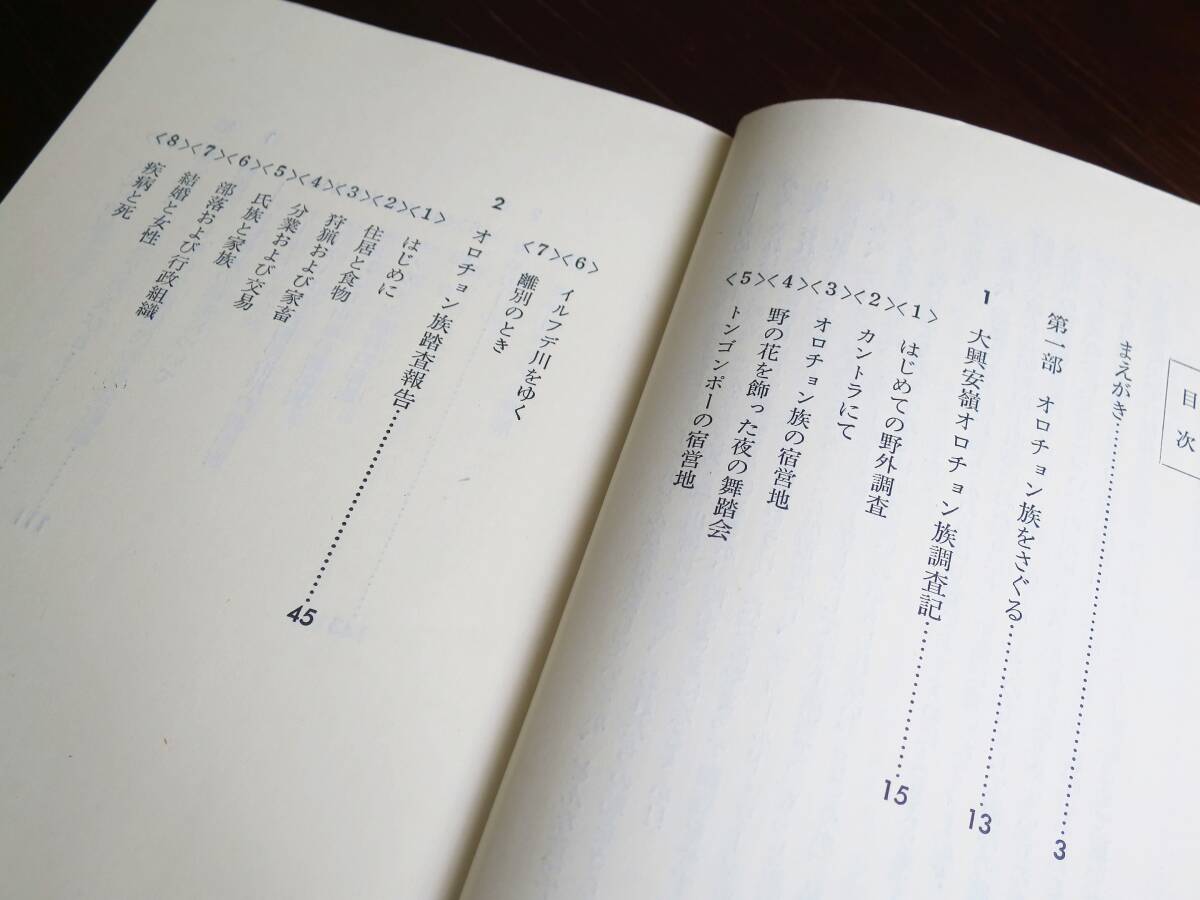 目次
まえがき……3
第一部 オロチョン族をさぐる……13
1 大興安嶺オロチョン族調査記……15
〈1〉 はじめての野外調査
〈2〉 カントラにて
〈3〉 オロチョン族の宿営地
〈4〉 野の花を飾った夜の舞踏会
〈5〉 トンゴンポーの宿営地
〈6〉 イルフデ川をゆく
〈7〉 離別のとき
2 オロチョン族踏査報告……45
〈1〉 はじめに
〈2〉 住居と食物
〈3〉 狩猟および家畜
〈4〉 分業および交易
〈5〉 氏族と家族
〈6〉 部落および行政組織
〈7〉 結婚と女性
〈8〉 疾病と死